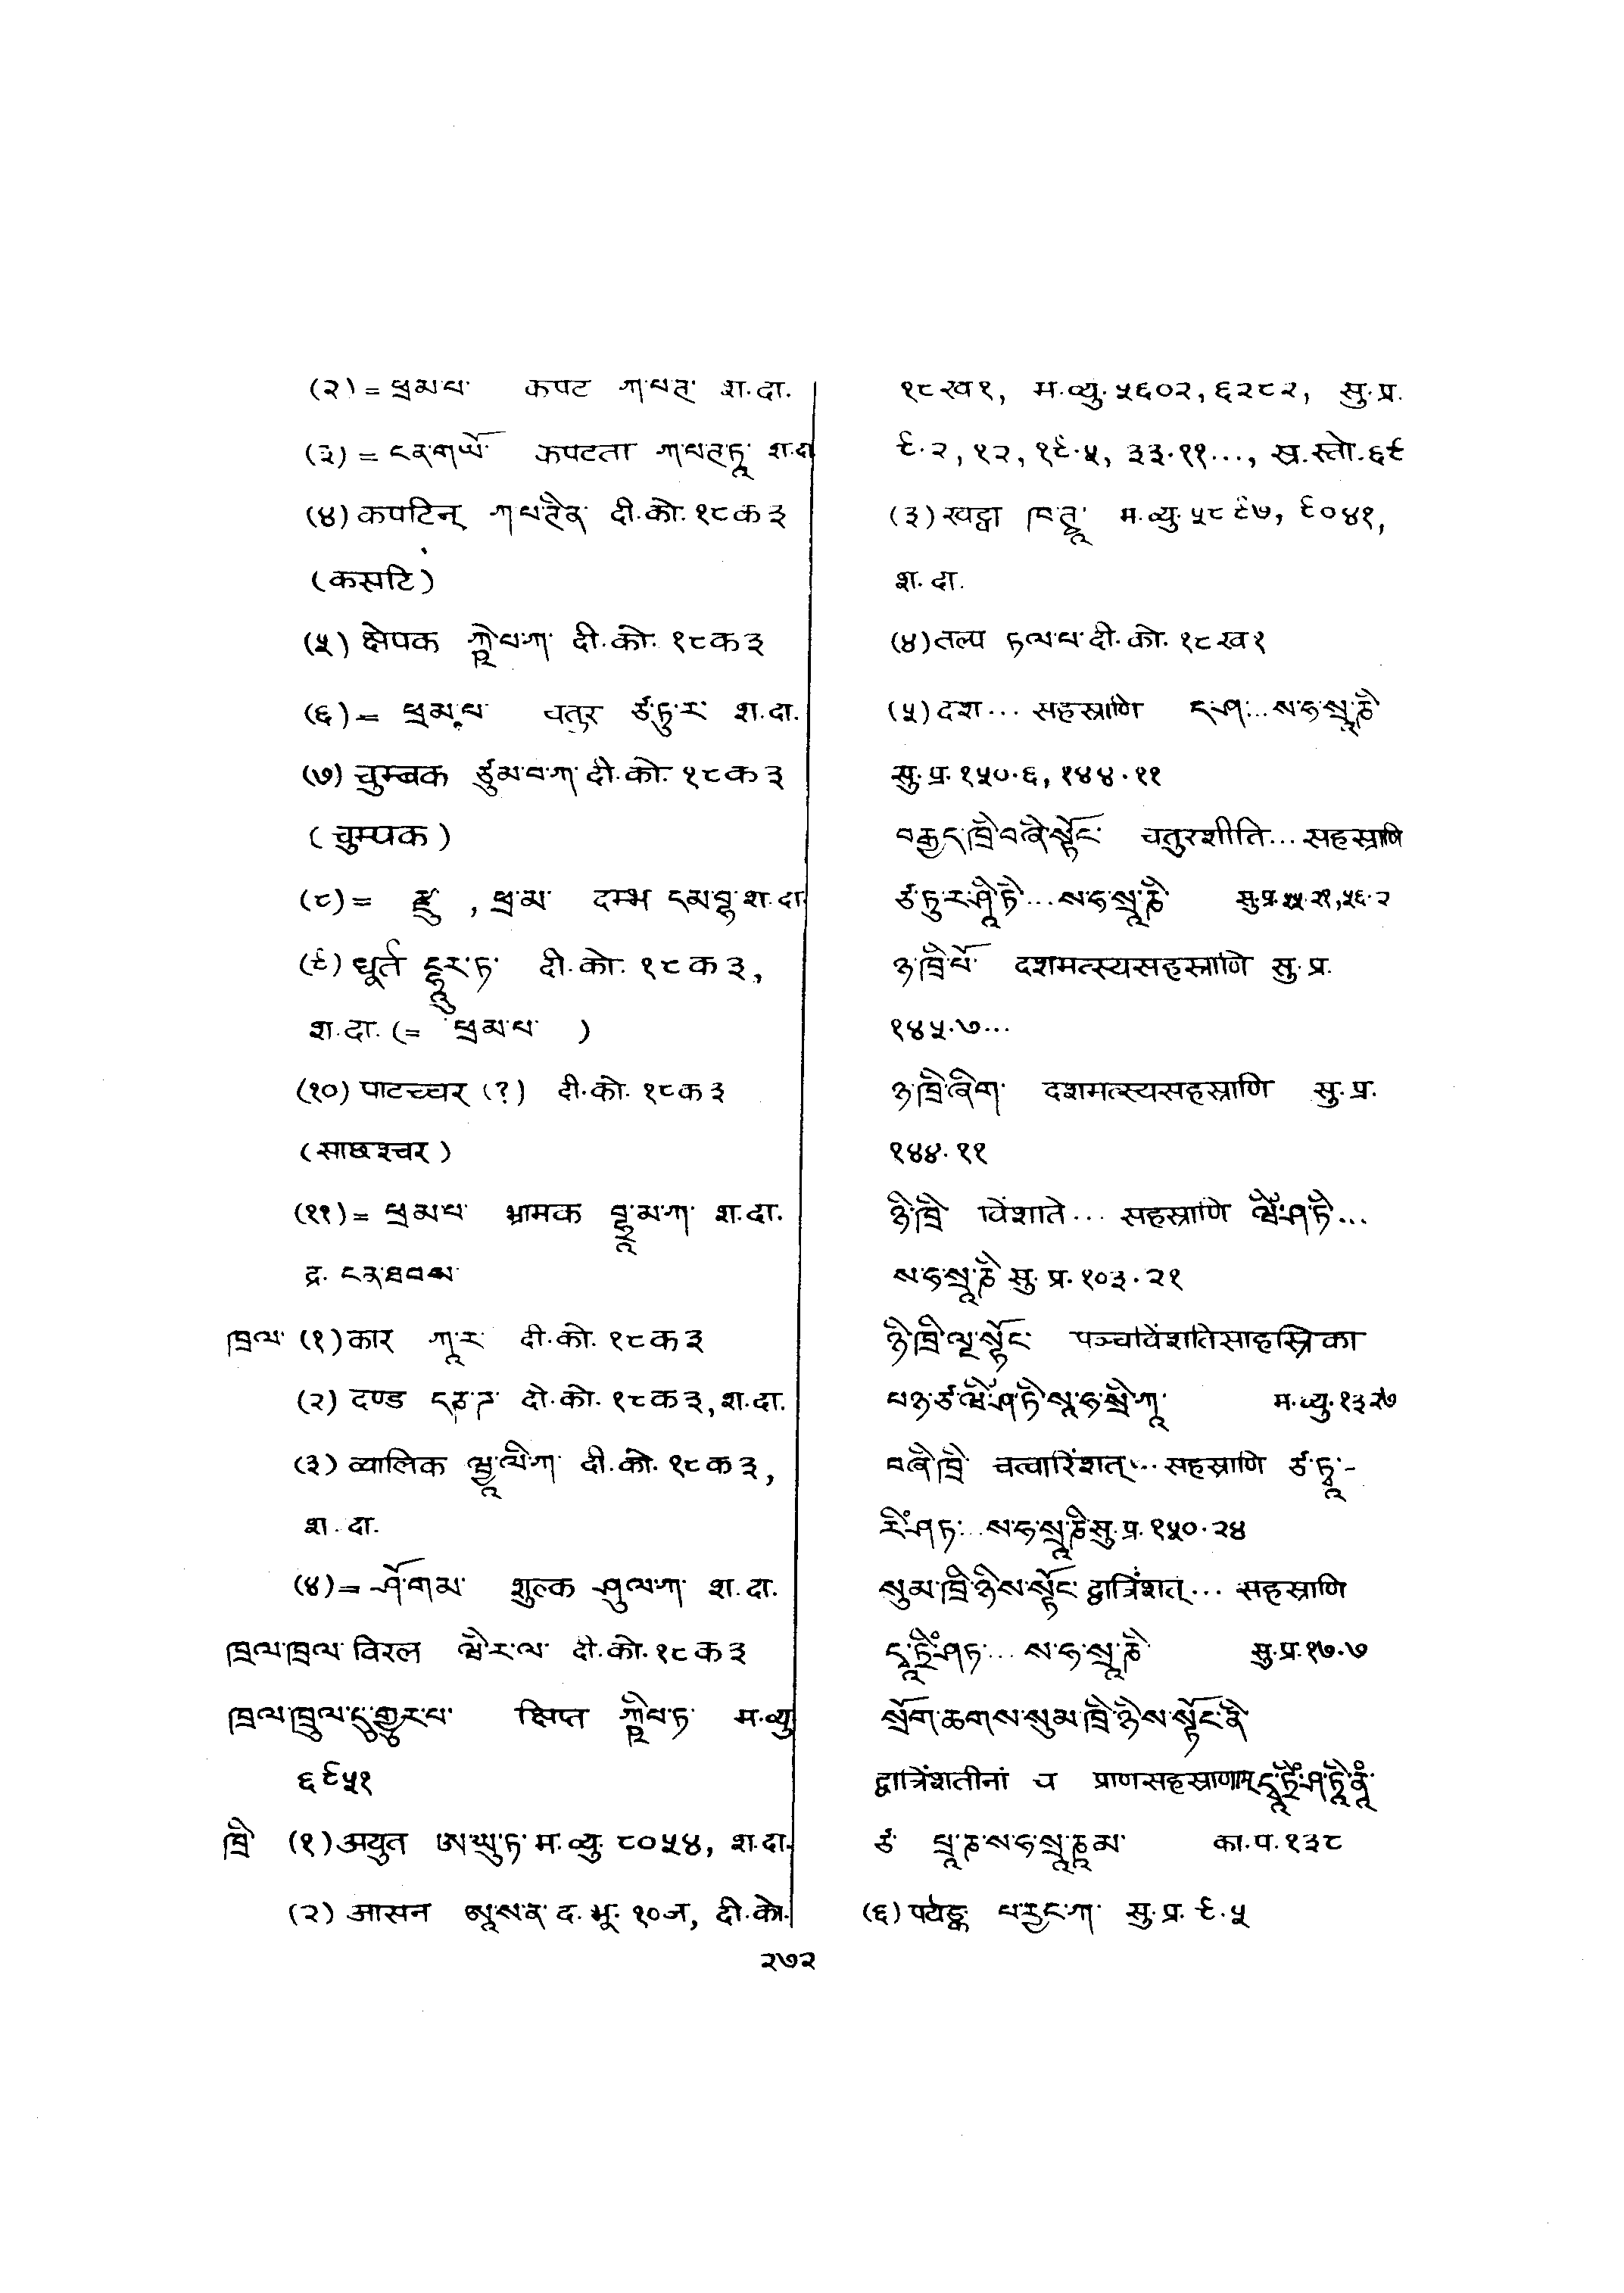 (२) = ཕྲམ་པ་ कपट ཀ་པཊ་ श.दा.
(३) = ངན་གཡོ་ कपटता ཀ་པཊ་ཏཱ་ श.दा
(४) कपटिन् ཀ་པཊིན་ दी.को. १८क३
(कसटि)
(५) क्षेपक ཀྵེ་པ་ཀ་ दी.को. १८क३
(६) = ཕྲམ་པ་ चतुर ཙ་ཏུ་ར་ श.दा.
(७) चुम्बक ཙུམ་བ་ཀ་ दी.को. १८क३
(चुम्पक)
(८) = , ཕྲ་མ་ दम्भ དམ་བྷ་ श.दा
(९) धूर्त དྷཱུར་ཏ་ दी.को. १८क३,
श.दा. (= ཕྲམ་པ་ )
(१०) पाटच्चर (?) दी.को. १८क३
(साछश्चर)
(११) = ཕྲམ་པ་ भ्रामक བྷྲཱ་མ་ཀ་ श.दा.
द्र. ངན་ཐབས་
ཁྲལ་ (१) कार ཀཱ་ར་ दी.को. १८क३
(२) दण्ड དཎ་ཌ་ दी.को. १८क३, श.दा.
(३) व्यालिक ཝྱཱ་ལི་ཀ་ दी.को. १८क३,
श.दा.
(४) = ཤོ་གམ་ शुल्क ཤུལ་ཀ་ श.दा.
ཁྲལ་ཁྲལ་ विरल ཝི་ར་ལ་ दी.को. १८क३
ཁྲལ་ཁྲུལ་དུ་གྱུར་པ་ क्षिप्त ཀྵིཔ་ཏ་ म.व्यु
६९५१
ཁྲི་ (१) अयुत ཨ་ཡུ་ཏ་ म.व्यु. ८०५४, श.दा.
(२) आसन ཨཱ་ས་ན་ द.भू. १०ज, दी.को.
१८ख१, म.व्यु. ५६०२, ६२८२, सु.प्र.
९.२, १२, १९.५, ३३.११..., स्र.स्तो.६९
(३) खट्वा ཁ་ཊྭཱ་ म.व्यु. ५८९७, ९०४१,
श.दा.
(४) तल्प ཏལ་པ་ दी.को. १८ख१
(५) दश... सहस्राणि ད་ཤ་...ས་ཧ་སྲཱ་ཎི་
सु.प्र. १५०.६, १४४.११
བརྒྱད་ཁྲི་བཞི་སྟོང་ चतुरशीति... सहस्राणि
ཙ་ཏུ་ར་ཤཱི་ཏི་...ས་ཧ་སྲཱ་ཎི་ सु.प्र. , ५६.२
ཉ་ཁྲི་པོ་ दशमत्स्यसहस्राणि सु.प्र.
१४५.७...
ཉ་ཁྲི་ཞིག་ दशमत्स्यसहस्राणि सु.प्र.
१४४.११
ཉི་ཁྲི་ विंशति... सहस्राणि ཝིཾ་ཤ་ཏི་...
ས་ཧ་སྲཱ་ཎི་ सु.प्र. १०३.२१
ཉི་ཁྲི་ལྔ་སྟོང་ पञ्चविंशतिसाहस्रिका
པཉ་ཙ་ཝིཾ་ཤ་ཏི་སཱ་ཧ་སྲི་ཀཱ་ म.व्यु. १३२७
བཞི་ཁྲི་ चत्वारिंशत्... सहस्राणि ཙ་ཏྭཱ་-
རིཾ་ཤཏ་...ས་ཧ་སྲཱ་ཎི་ सु.प्र. १५०.२४
སུམ་ཁྲི་ཉིས་སྟོང་ द्वात्रिंशत्... सहस्राणि
དྭཱ་ཏྲིཾ་ཤཏ་... ས་ཧ་སྲཱ་ཎི་ सु.प्र. १७.७
སྲོག་ཆགས་སུམ་ཁྲི་ཉིས་སྟོང་ནི་
द्वात्रिंशतीनां च प्राणसहस्राणाम् དྭཱ་ཏྲིཾ་ཤ་ཏཱི་ནཱཾ་
ཙ་ པྲཱ་ཎ་ས་ཧ་སྲཱ་ཎཱམ་ का.प. १३८
(६) पर्यङ्क པ་རྱང་ཀ་ सु.प्र. ९.५
२७२